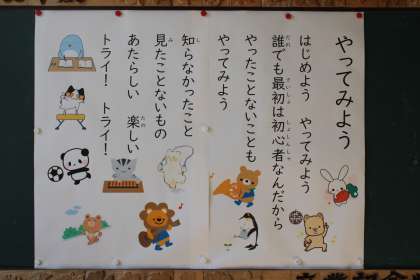 やってみよう
はじめよう やってみよう
誰でも最初は初心者なんだから
やったことないことも
やってみよう
知らなかったこと
見たことないもの
あたらしい 楽しい
トライ! トライ!